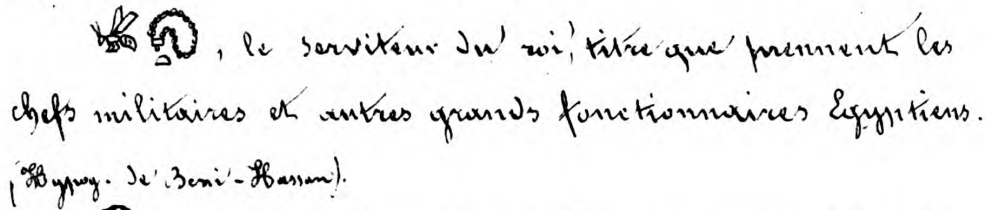 , le serviteur du roi, titre que prennent les
chefs militaires et autres grands fonctionnaires Egyptiens.
(Hypog. de Beni-Hassan).